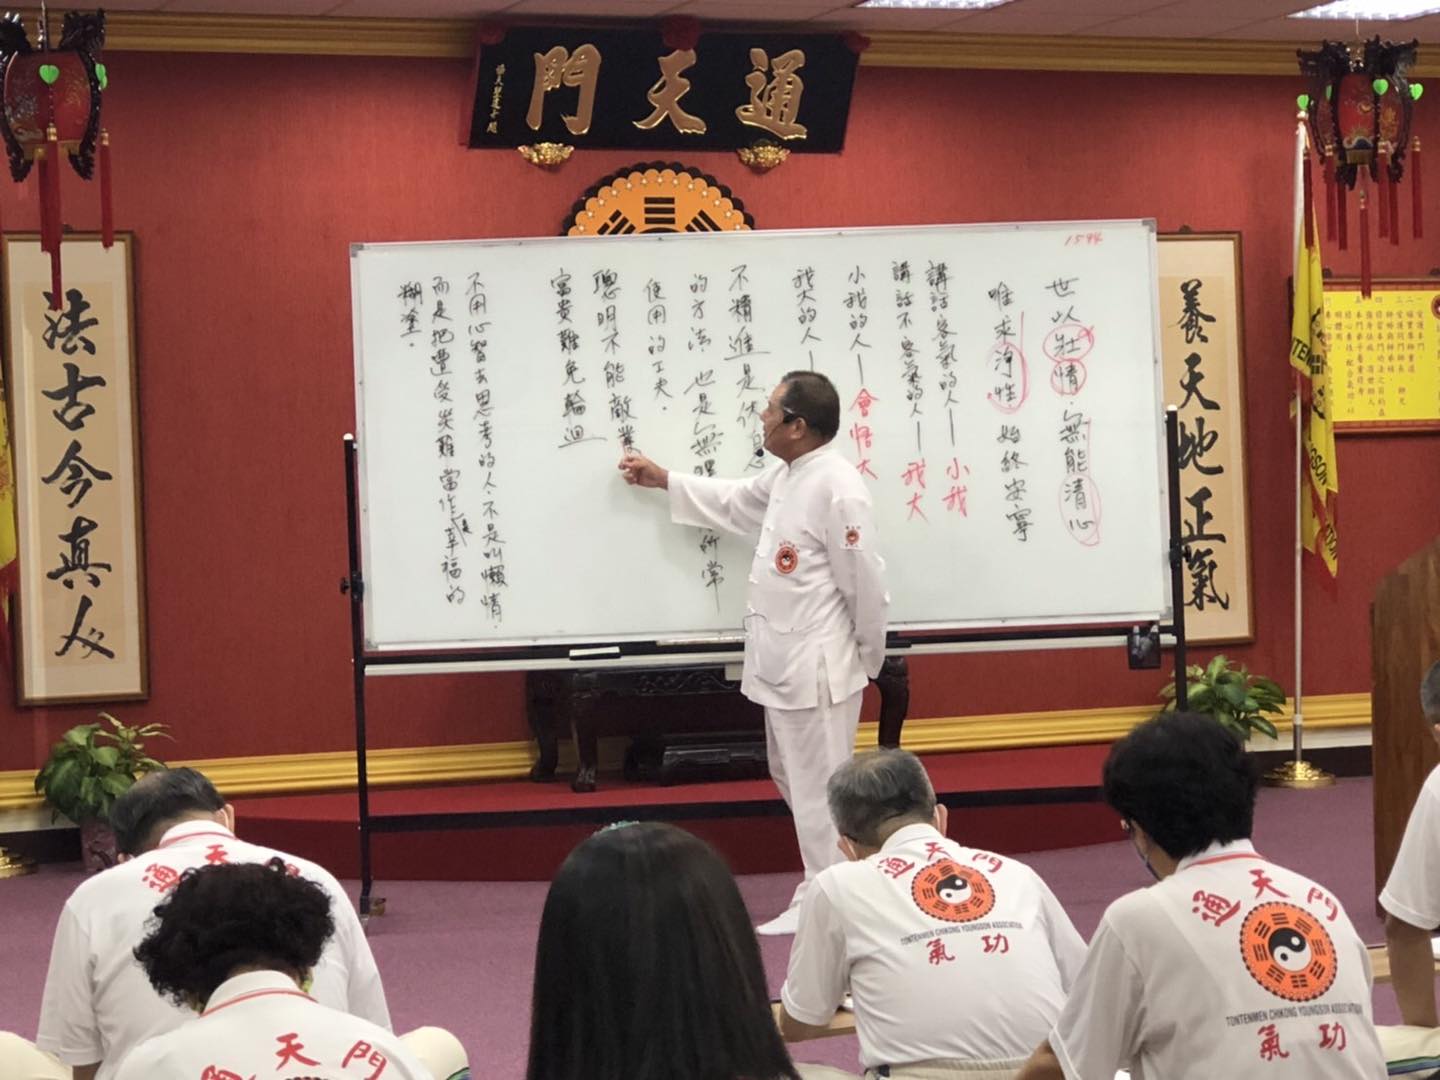 通天門
1594
世以壯情．無能清心
唯求淨性．始終安寧
講話客氣的人—小我
講話不客氣的人—我大
小我的人—會悟大
我大的人—
不精進是休息
的方法，也是無
所常
使用的工夫．
聰明不能敵業
富貴難免輪迴
不用心智去思考的人，不是叫懶惰．
而是把遭受災難當作是幸福的
糊塗．
養天地正氣
法古今真人
通天門
TONTENMEN CHIKONG YOUNGSON ASSOCIATION
氣功
通天門
TONTENMEN CHIKONG YOUNGSON ASSOCIATION
氣功
通天
天門